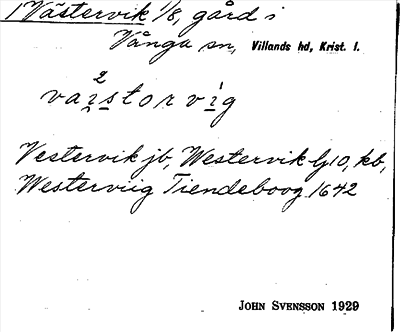 1 Västervik 1/8, gård i
Vånga sn, Villands hd, Krist. l.
vaistorvig
Vestervik jb, Westervik Gj10, kb,
Westerviig Tiendeboog 1642
JOHN SVENSSON 1929